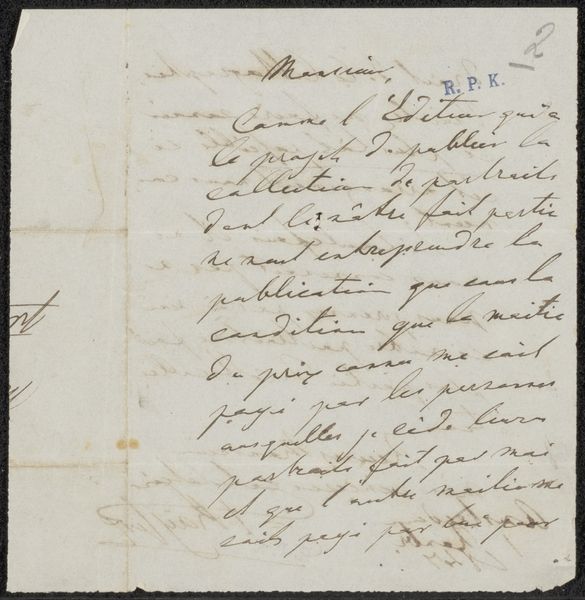 2
R. P. K.
Monsieur,
Comme l'Editeur qui a
le projet de publier la
collection de portraits
dont le vôtre fait partie
ne veut entreprendre la
publication que sous la
condition que la moitié
du prix convenu me soit
payé par les personnes
auxquelles je cède leurs
portraits fait par moi
et que l'autre moitié me
soit payé par